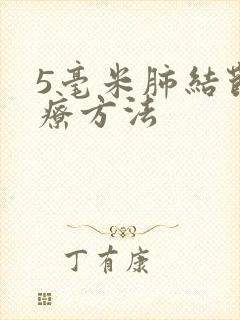 5毫米肺結
療方法
丁有康